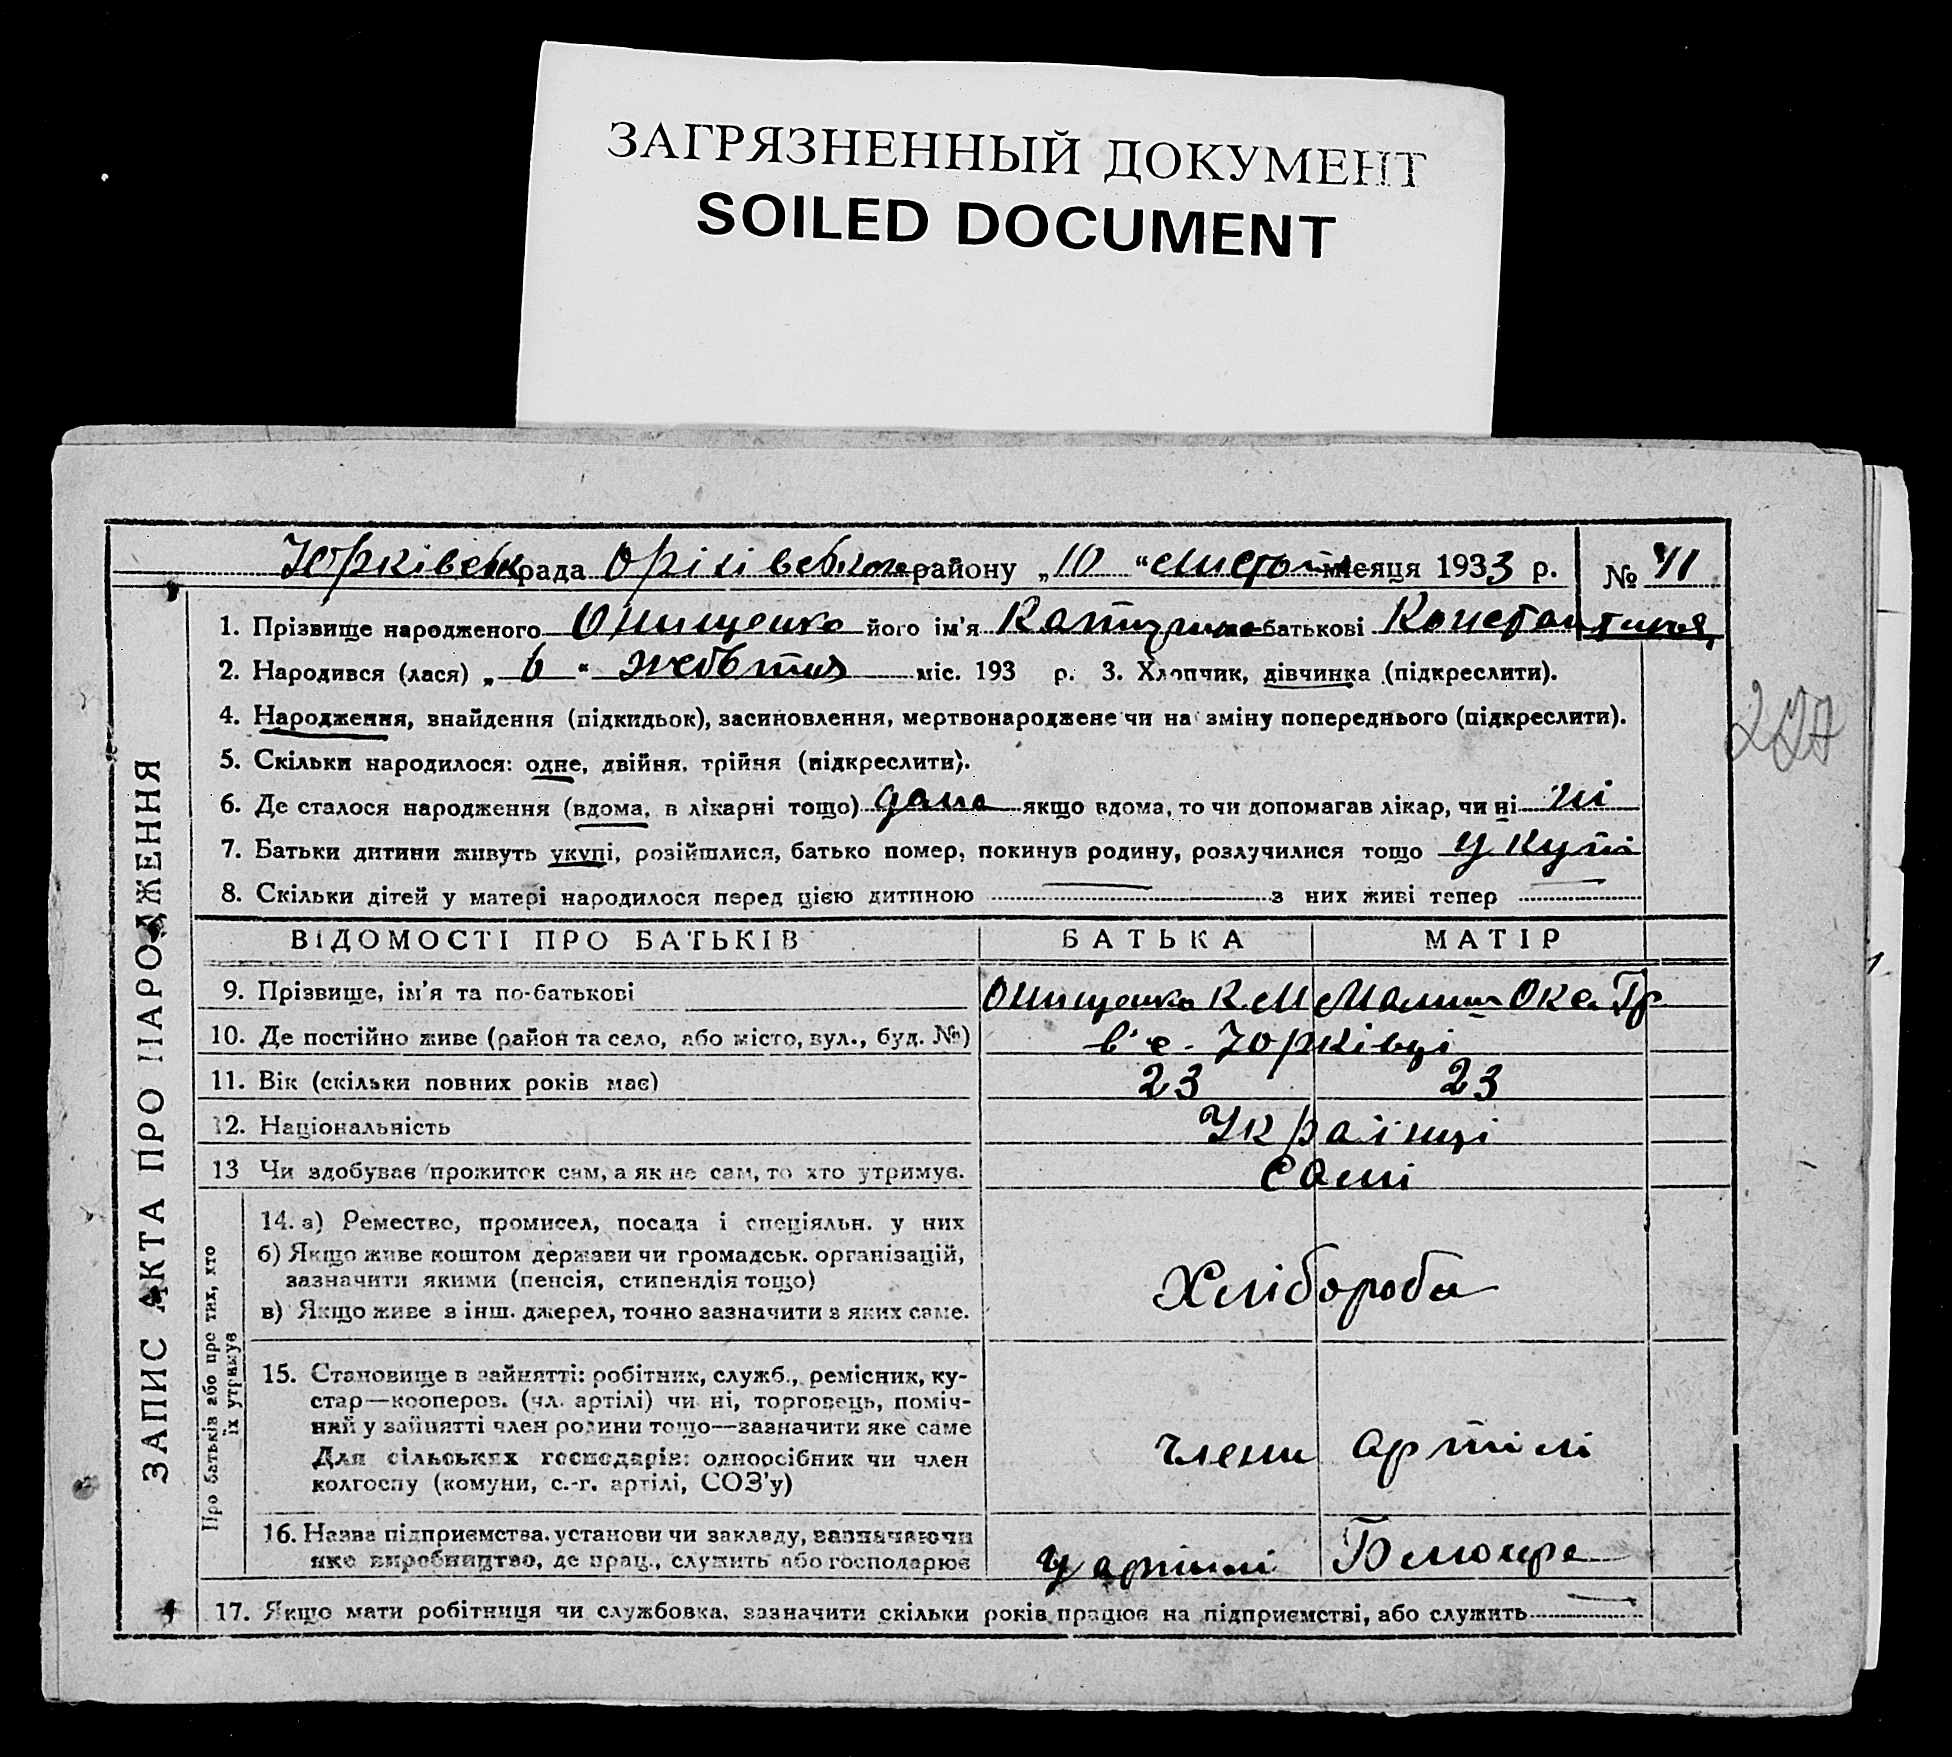 ЗАГРЯЗНЕННЫЙ ДОКУМЕНТ
SOILED DOCUMENT
рада району „10“ місяця 1933 р. № 41
1. Прізвище народженого Онищенко його ім'я батькові
2. Народився (лася) „6“ жовтня міс. 193 р. 3. Хлопчик, дівчинка (підкреслити).
4. Народження, знайдення (підкидьок), засиновлення, мертвонароджене чи на зміну попереднього (підкреслити).
5. Скільки народилося: одне, двійня, трійня (підкреслити).
6. Де сталося народження (вдома, в лікарні тощо) дома якщо вдома, то чи допомагав лікар, чи ні ні
7. Батьки дитини живуть укупі, розійшлися, батько помер, покинув родину, розлучилися тощо у купі
8. Скільки дітей у матері народилося перед цією дитиною — з них живі тепер —
227
ЗАПИС АКТА ПРО НАРОДЖЕННЯ
ВІДОМОСТІ ПРО БАТЬКІВ БАТЬКА МАТІР
9. Прізвище, ім'я та по-батькові Онищенко К. М
10. Де постійно живе (район та село, або місто, вул., буд. №) в с. Юрківці
11. Вік (скільки повних років має) 23 23
12. Національність Українці
13 Чи здобуває прожиток сам, а як не сам, то хто утримує. самі
Про батьків або про тих, хто
їх утримує
14. а) Ремество, промисел, посада і спеціяльн. у них
б) Якщо живе коштом держави чи громадськ. організацій,
зазначити якими (пенсія, стипендія тощо) Хлібороби
в) Якщо живе з інш. джерел, точно зазначити з яких саме.
15. Становище в зайнятті: робітник, служб., ремісник, ку-
стар—кооперов. (чл. артілі) чи ні, торговець, поміч-
ний у зайнятті член родини тощо—зазначити яке саме
Для сільських господарів: одноосібник чи член члени артілі
колгоспу (комуни, с.-г. артілі, СОЗ'у)
16. Назва підприємства, установи чи закладу, зазначаючи
яке виробництво, де прац., служить або господарює у артілі Блюхера
17. Якщо мати робітниця чи службовка, зазначити скільки років працює на підприємстві, або служить —